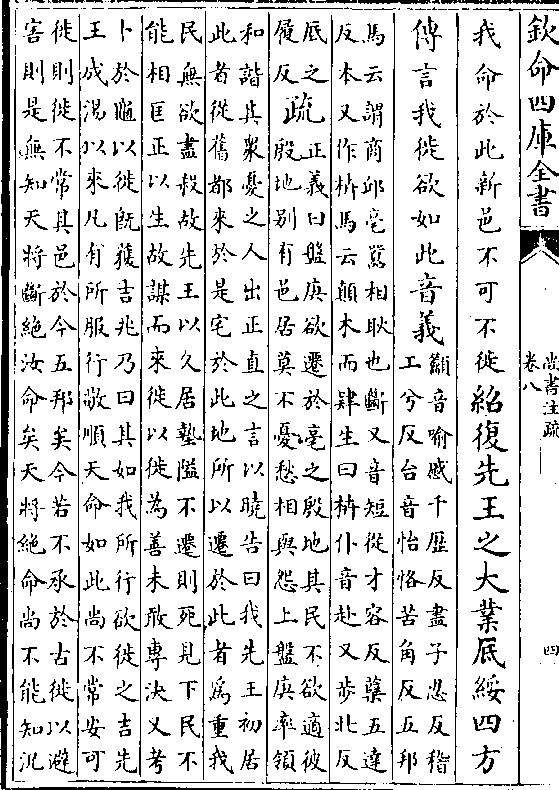 欽定四庫全書
尚書注疏
卷八
四
我命於此新邑不可不徙紹復先王之大業底綏四方
傳言我徙欲如此音義
籲音喻慼千歴反盡子忍反稽
工兮反台音怡恪苦角反五邦
馬云謂商邱亳嚻相耿也斷又音短從才容反蘖五達
反本又作枿馬云顛木而肄生曰枿仆音赴又歩北反
底之
履反
疏
正義曰盤庚欲遷於亳之殷地其民不欲適彼
殷地別有邑居莫不憂愁相與怨上盤庚率領
和諧其衆憂之人出正直之言以曉告曰我先王初居
此者從舊都來於是宅於此地所以遷於此者爲重我
民無欲盡殺故先王以久居墊隘不遷則死見下民不
能相匡正以生故謀而來徙以徙為善未敢專決又考
卜於龜以徙既獲吉兆乃曰其如我所行欲徙之吉先
王成湯以來凡有所服行敬順天命如此尚不常安可
徙則徙不常其邑於今五邦矣今若不承於古徙以避
害則是無知天將斷絶汝命矣天將絶命尚不能知況